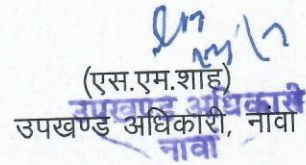 (एस.एम.शाह)
उपखण्ड अधिकारी
उपखण्ड अधिकारी, नांवा
नावां